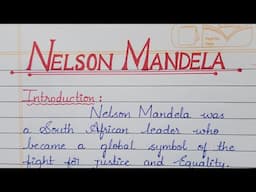 NELSON MANDELA
Introduction:
Nelson Mandela was
a South African leader who
became a global symbol of the
fight for justice and Equality.